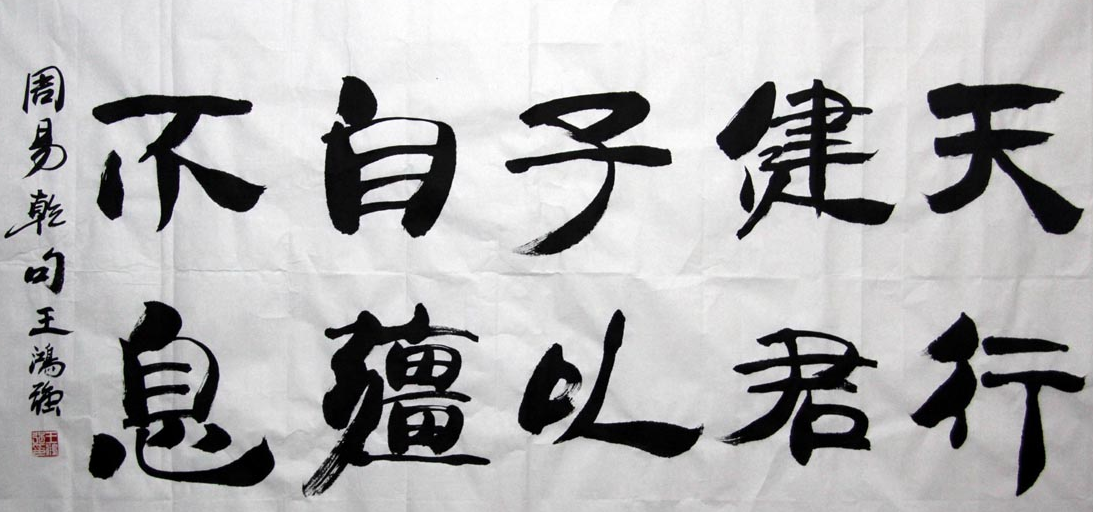 天行
健君
子以
自彊
不息
周易乾句王鴻強